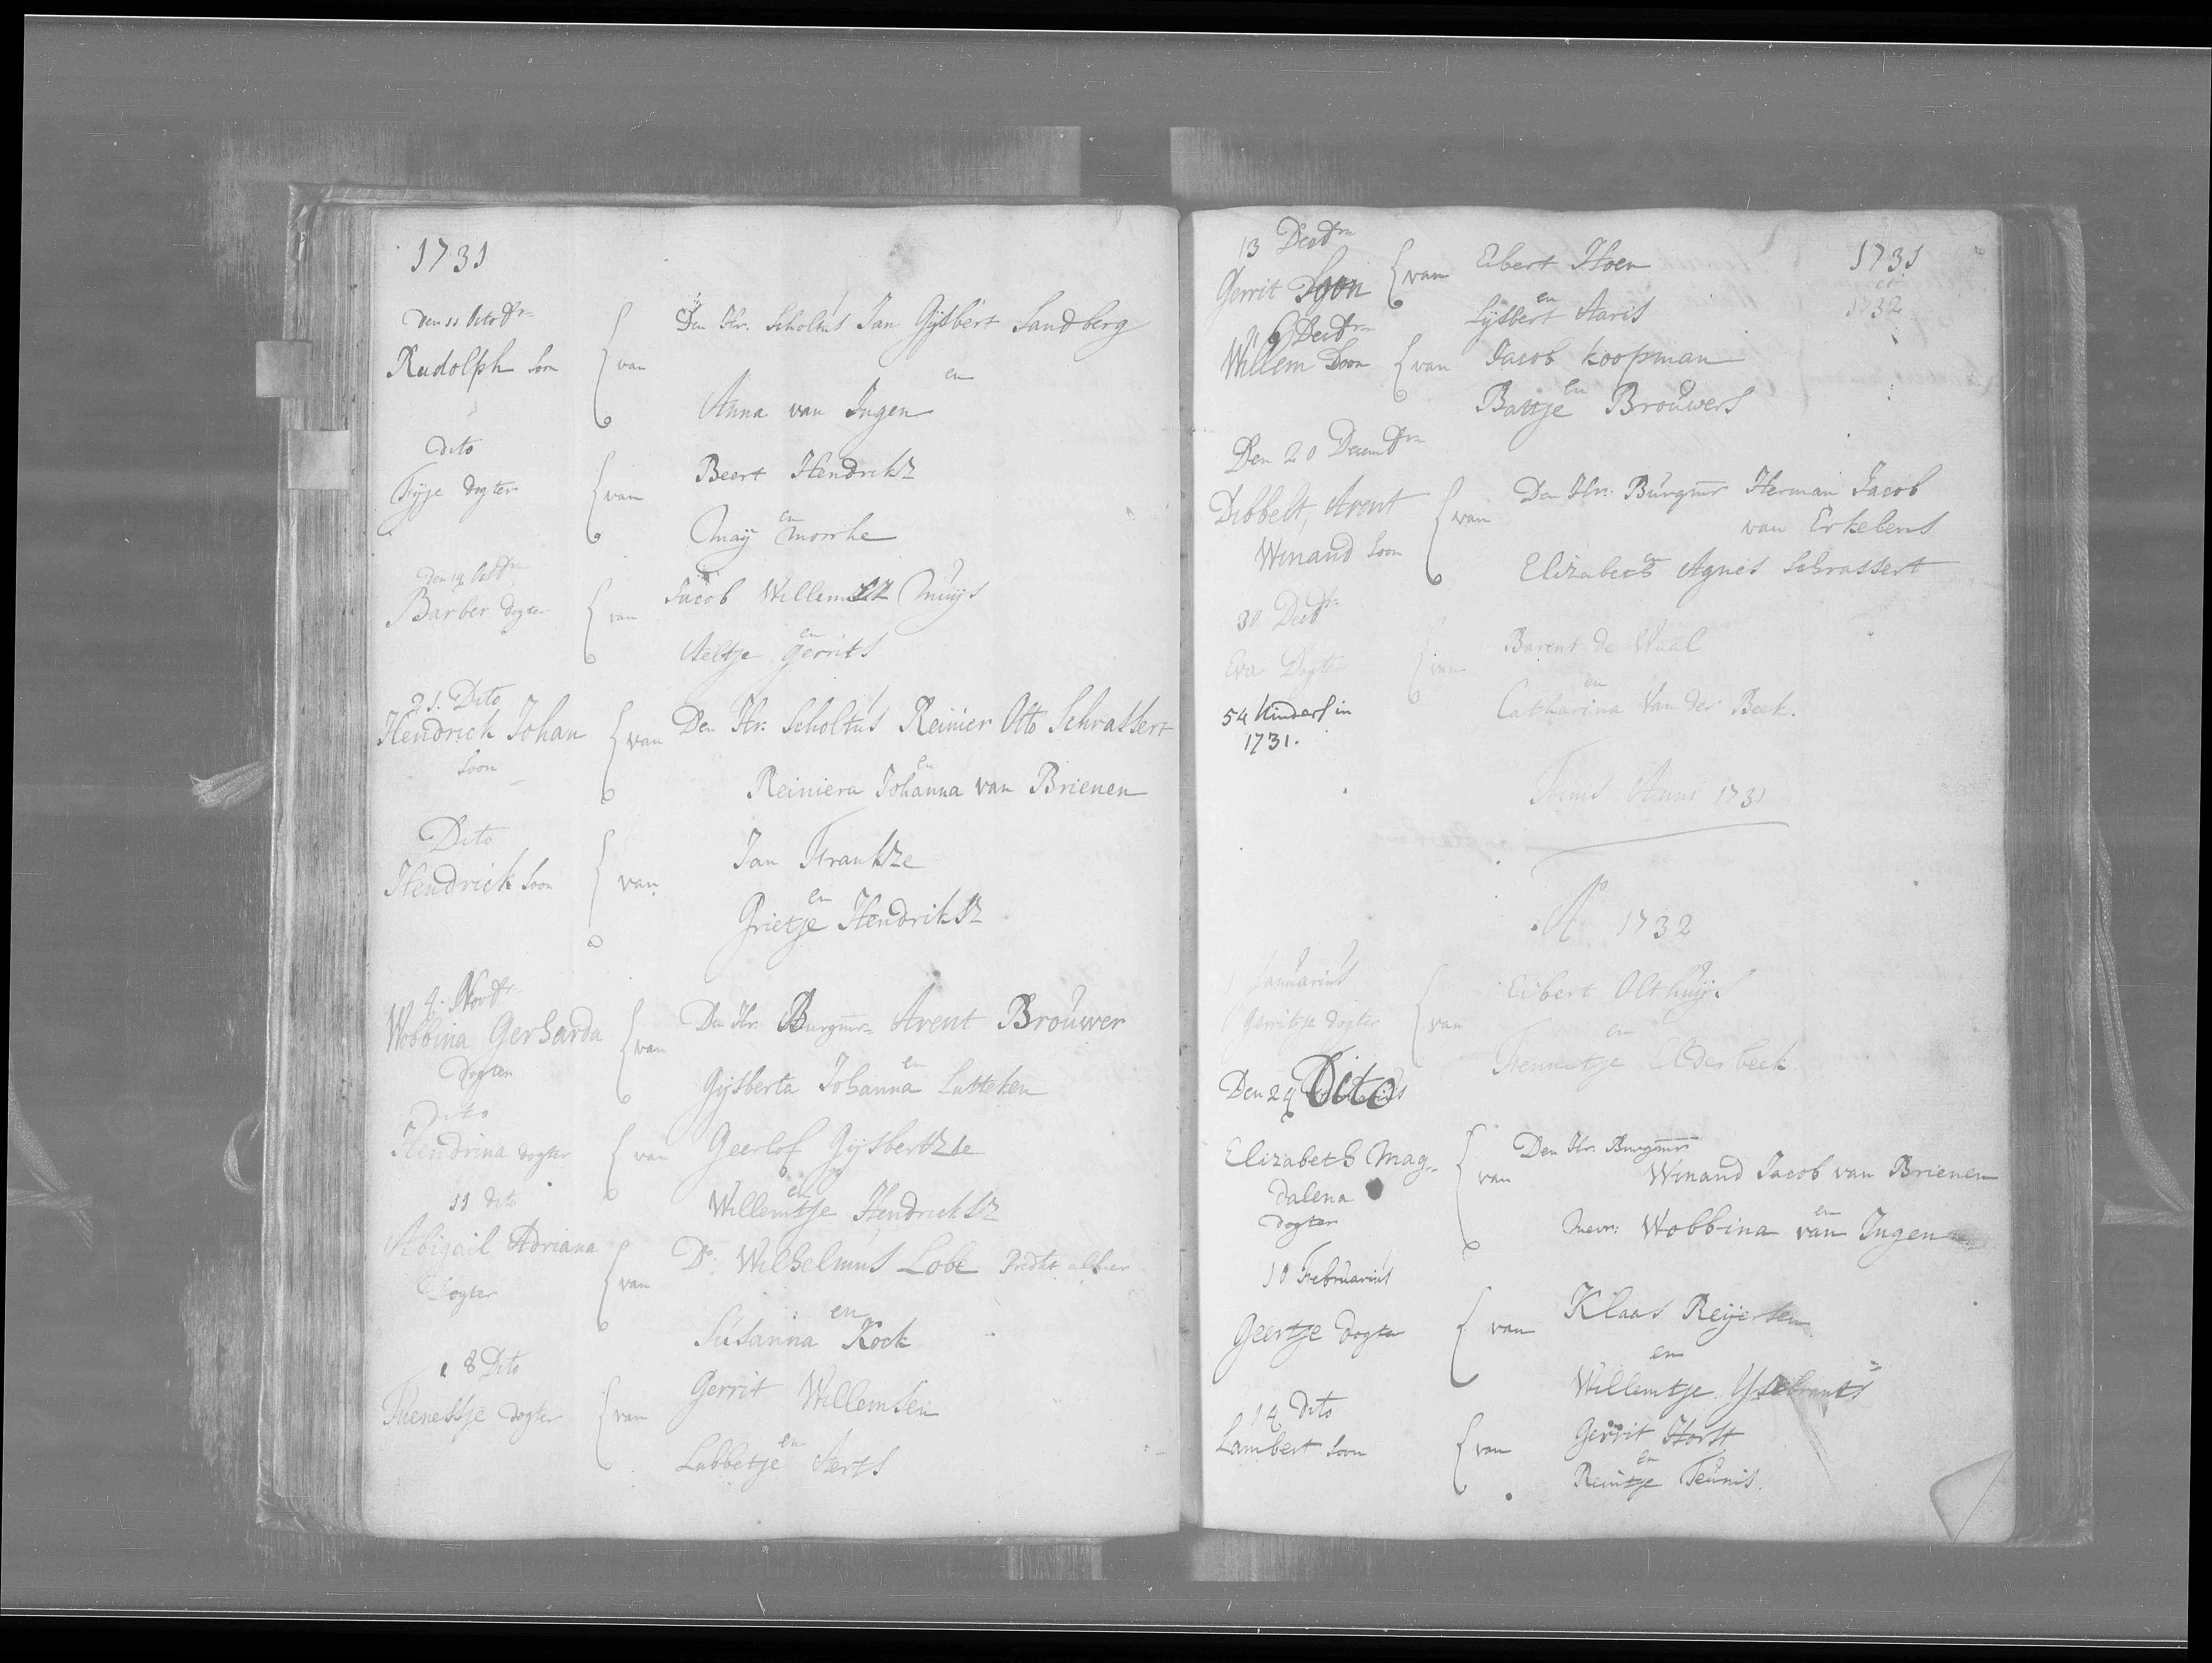 1731
Den 11 Octobr.
Den Hr. Scholtus Jan Gijsbert Sandberg
Rudolph soon { van
en
Anna van Ingen
Dito
Beert Hendriksz
Fijje dogter { van
en
Maij Morrhe
Den 14 Octobr
Jacob Willemsz Muijs
Barber dogter { van
en
Aeltje Gerrits
21. Dito
Hendrick Johan { van Den Hr. Scholtus Reinier Otto Schrassert
soon
en
Reiniera Johanna van Brienen
Dito
Jan Franksze
Hendrick soon { van
en
Grietje Hendriksz
4. Novbr.
Wobbina Gerharda { van Den Hr. Burgmr. Arent Brouwer
Dogter
en
Gijsberta Johanna Lutteken
Dito
Hendrina dogter { van Geerlof Gijsbertsze
en
Willemtje Hendricksz
11 dito
Abigail Adriana { van Do. Wilhelmus Lobe Predkt alhier
Dogter
en
Susanna Kock
18 Dito
Gerrit Willemsen
dogter { van
en
Lubbetje Aerts
13 Decbr.
1731
et
1732
Gerrit Soon { van Eibert Hoen
en
Lijsbert Aaris
16 Decbr.
Willem Soon { van Jacob Koopman
en
Battje Brouwers
Den 20 Decembr.
Dibbelt, Arent { van Den Hr. Burgmr Herman Jacob
van Erkelens
Winand soon
en
Elizabeth Agnes Schrassert
30 Decbr.
Barent de Waal
Eva Dogter { van
en
Catharina van der Beek.
54 kinders in
1731.
Finis Anni 1731
Ao 1732
Januarius
Eibert Olthuijs
Gerritje dogter { van
en
Elderbeek
Den 24 Dito
Elizabeth Mag- { van Den Hr. Burgmr
Winand Jacob van Brienen
dalena
dogter
en
Mevr: Wobbina van Ingen
10 Februarius
Klaas Reijersen
Geertje dogter { van
en
Willemtje Ysebrants
14 dito
Lambert soon { van Gerrit Horst
en
Reintje Teunis.